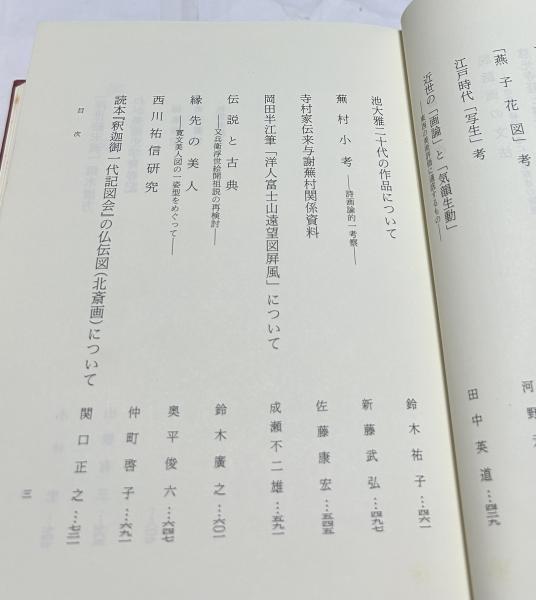 「燕子花図」考
江戸時代「写生」考
河野
近世の「画論」と「気韻生動」
田中英道
池大雅二十代の作品について
鈴木祐子…四六一
蕪村小考
——詩画論的一考察——
新藤武弘…四九七
寺村家伝来与謝蕪村関係資料
佐藤康宏…五四五
岡田半江筆「洋人富士山遠望図屏風」について
成瀬不二雄…五九一
伝説と古典
——又兵衛浮世絵開祖説の再検討——
鈴木廣之…六〇一
縁先の美人
——寛文美人図の一姿型をめぐって——
奥平俊六…六四七
西川祐信研究
仲町啓子…六九一
読本『釈迦御一代記図会』の仏伝図(北斎画)について
関口正之…七二一
目次
三